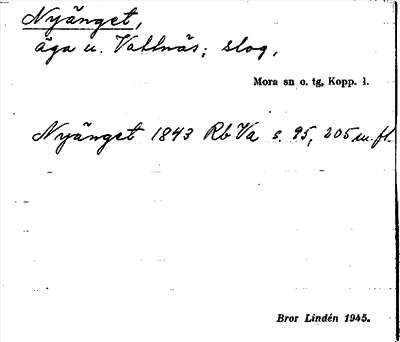 Nyänget,
äga u. Vattnäs; slog,
Mora sn o. tg, Kopp. l.
Nyänget 1843 Rb Va s. 95, 205 m. fl.
Bror Lindén 1945.